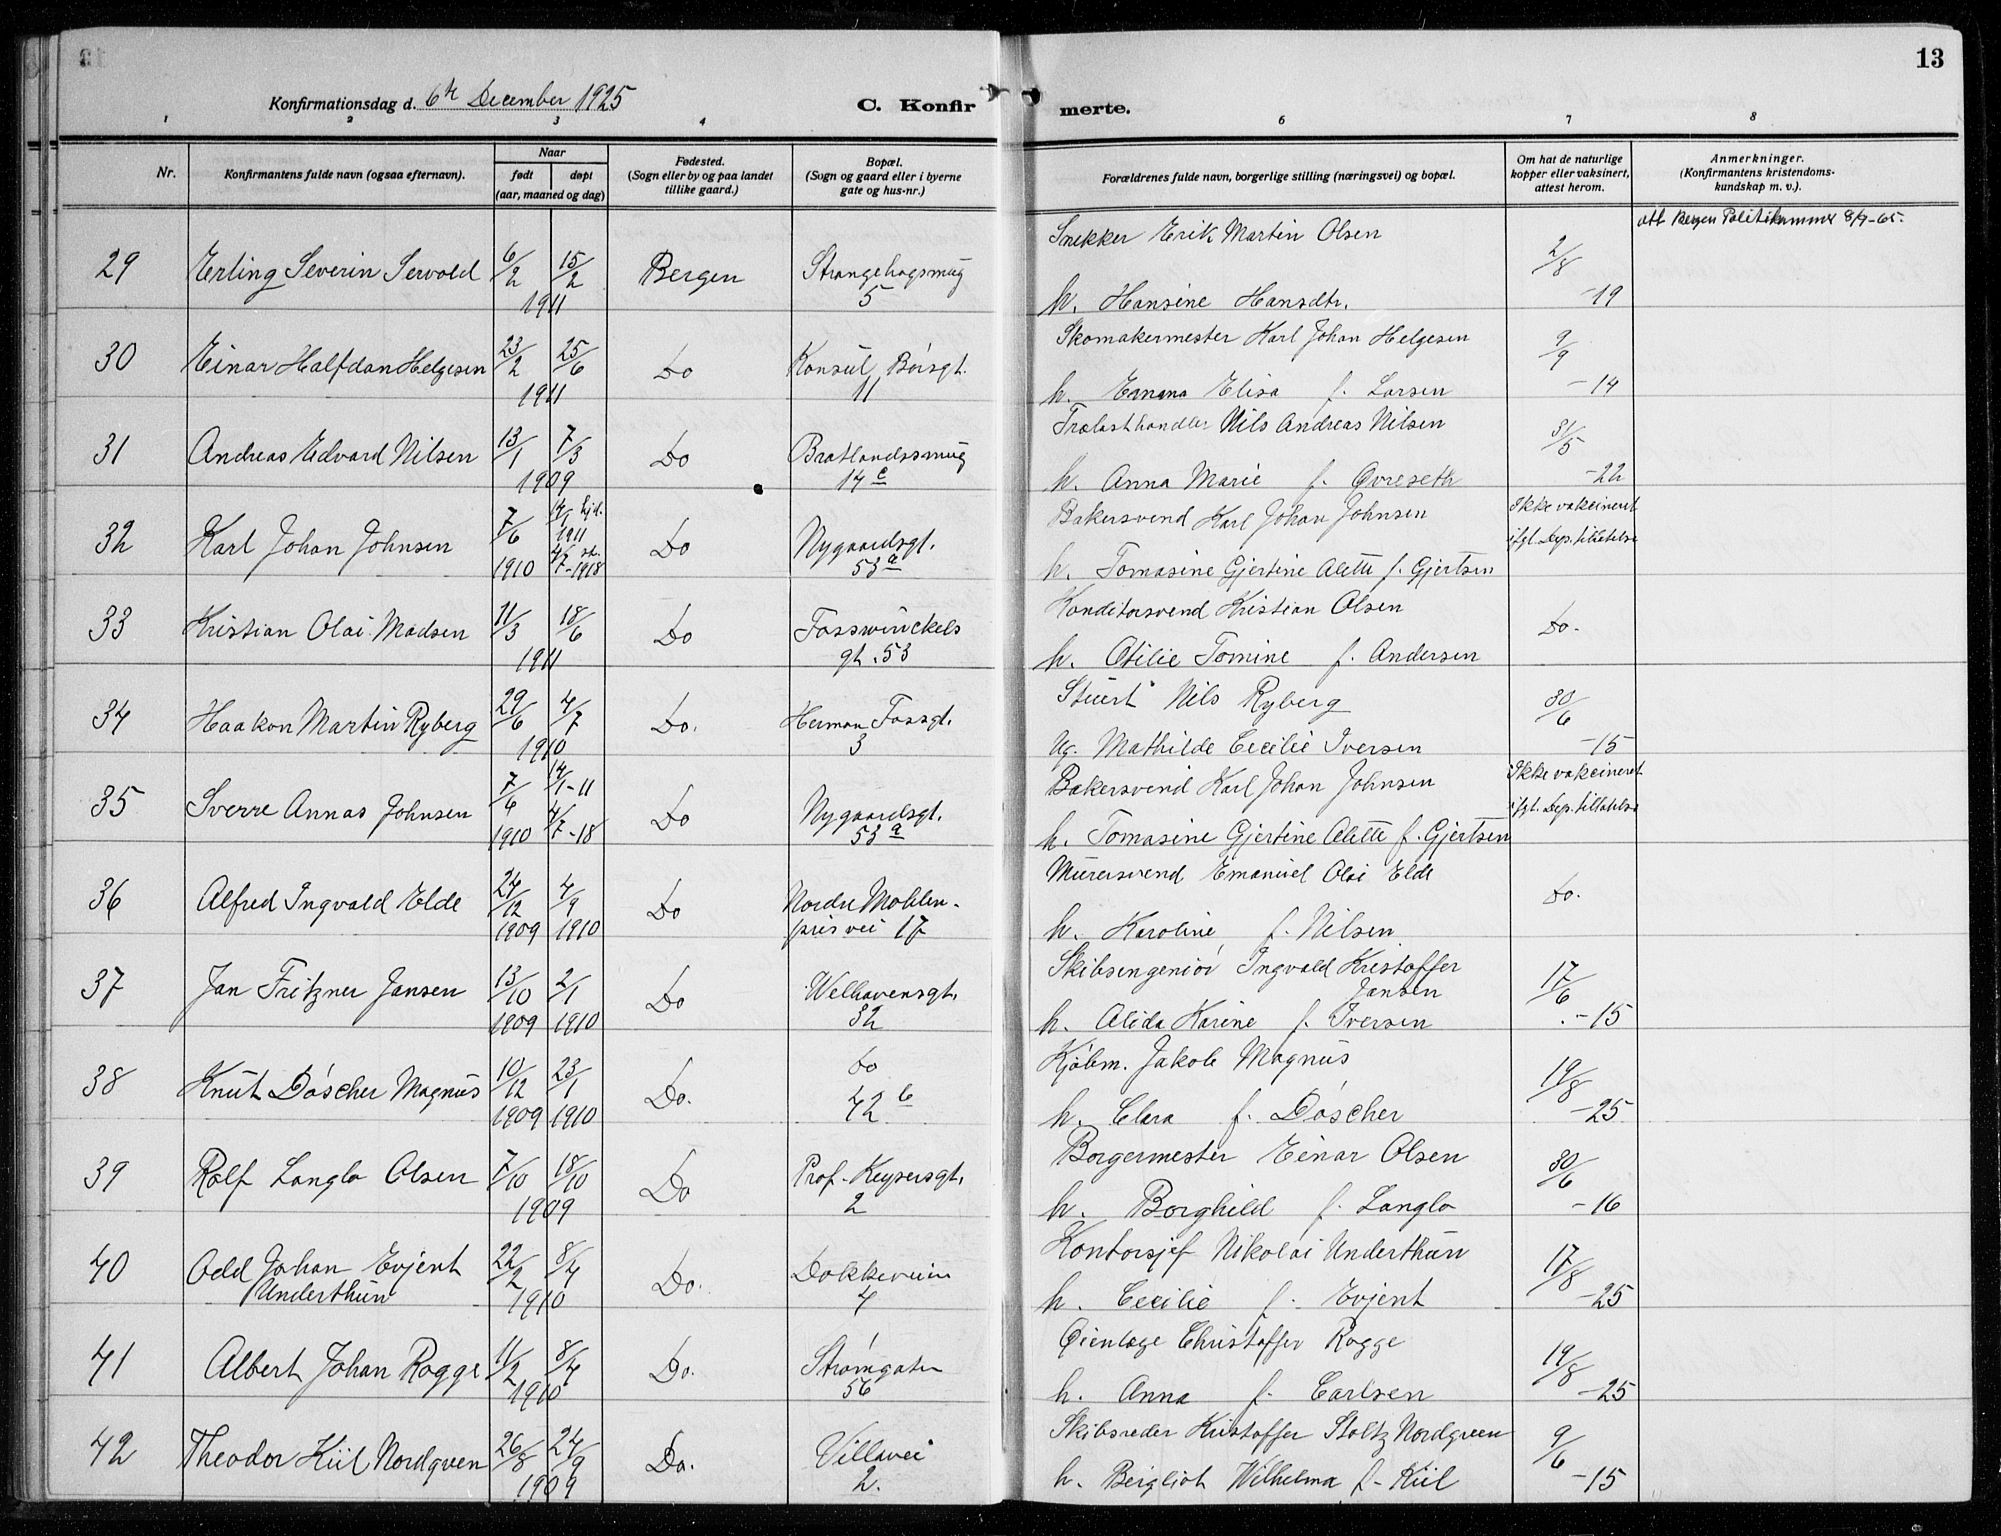 13
Konfirmationsdag d. 6te December 1925
C. Konfirmerte.
1 2 3 4 6 7 8
Nr.
Konfirmantens fulde navn (ogsaa efternavn).
Naar
født døpt
(aar, maaned og dag)
Fødested.
(Sogn eller by og paa landet
tillike gaard.)
Bopæl.
(Sogn og gaard eller i byerne
gate og hus-nr.)
Forældrenes fulde navn, borgerlige stilling (næringsvei) og bopæl.
Om hat de naturlige
kopper eller vaksinert,
attest herom.
Anmerkninger.
(Konfirmantens kristendoms-
kundskap m. v.)
att Bergen Politikammer 8/9-65.
29 Erling Severin Servold 6/2 15/2 1911 Bergen Strangehagsmug 5
Snekker Erik Martin Olsen 2/8
h. Hansine Hansdtr. -19
30 Einar Halfdan Helgesen 23/2 25/6 1911 Do Konsul Børsgt. 11
Skomakermester Karl Johan Helgesen 9/9
h. Emma Elisa f. Larsen -14
31 Andreas Edvard Nilsen 13/1 7/3 1909 Do Bratlandssmug 14 c
Trælasthandler Nils Andreas Nilsen 31/5
h. Anna Marie f. Øvreseth -22
32 Karl Johan Johnsen 7/6 1910 14/1 hjd. 1911 4/7 st. -1918 Do Nygaardsgt. 53 a
Bakersvend Karl Johan Johnsen Ikke vakcineret
h. Tomasine Gjertine Alette f. Gjertsen ifgl. Dep. tillatelse
33 Kristian Olai Madsen 11/3 18/6 1911 Do Fosswinckels gt. 53
Konditorsvend Kristian Olsen Do.
h. Otilie Tomine f. Andersen
34 Haakon Martin Ryberg 29/6 4/7 1910 Do. Herman Fossgt. 3
Stuert Nils Ryberg 30/6
Ug. Mathilde Cecilie Iversen -15
35 Sverre Annas Johnsen 7/6 1910 14/1-11 4/7-18 Do Nygaardsgt. 53 a
Bakersvend Karl Johan Johnsen Ikke vakcineret
h. Tomasine Gjertine Alette f. Gjertsen ifgl. Dep. tillatelse
36 Alfred Ingvald Elde 24/12 1909 4/9 1910 Do Nordre Møhlen-
prisvei 17
Murersvend Emanuel Olai Elde Do.
h. Karoline f. Nilsen
37 Jan Fritzner Jansen 13/10 1909 2/1 1910 Do Welhavensgt. 32
Skibsingeniør Ingvald Kristoffer Jansen 17/6
h. Alida Karine f. Iversen -15
38 Knut Döscher Magnus 10/12 1909 23/1 1910 Do. Do 42 b
Kjøbm. Jakob Magnus 19/8
h. Clara f. Döscher -25
39 Rolf Langlo Olsen 7/10 18/10 1909 Do Prof. Keysersgt. 2
Borgermester Einar Olsen 30/6
h. Borghild f. Langlo -16
40 Odd Johan Evjent
Underthun 22/2 8/4 1910 Do. Dokkeveien 4
Kontorsjef Nikolai Underthun 17/8
h. Cecilie f. Evjent -25
41 Albert Johan Rogge 11/2 8/4 1910 Do. Strømgaten 56
Øienlæge Christoffer Rogge 19/8
h. Anna f. Carlsen -25
42 Theodor Kiil Nordgreen 26/8 24/9 1909 Do. Villavei 2.
Skibsreder Kristoffer Stoltz Nordgreen 9/6
h. Bergliot Wilhelma f. Kiil -15